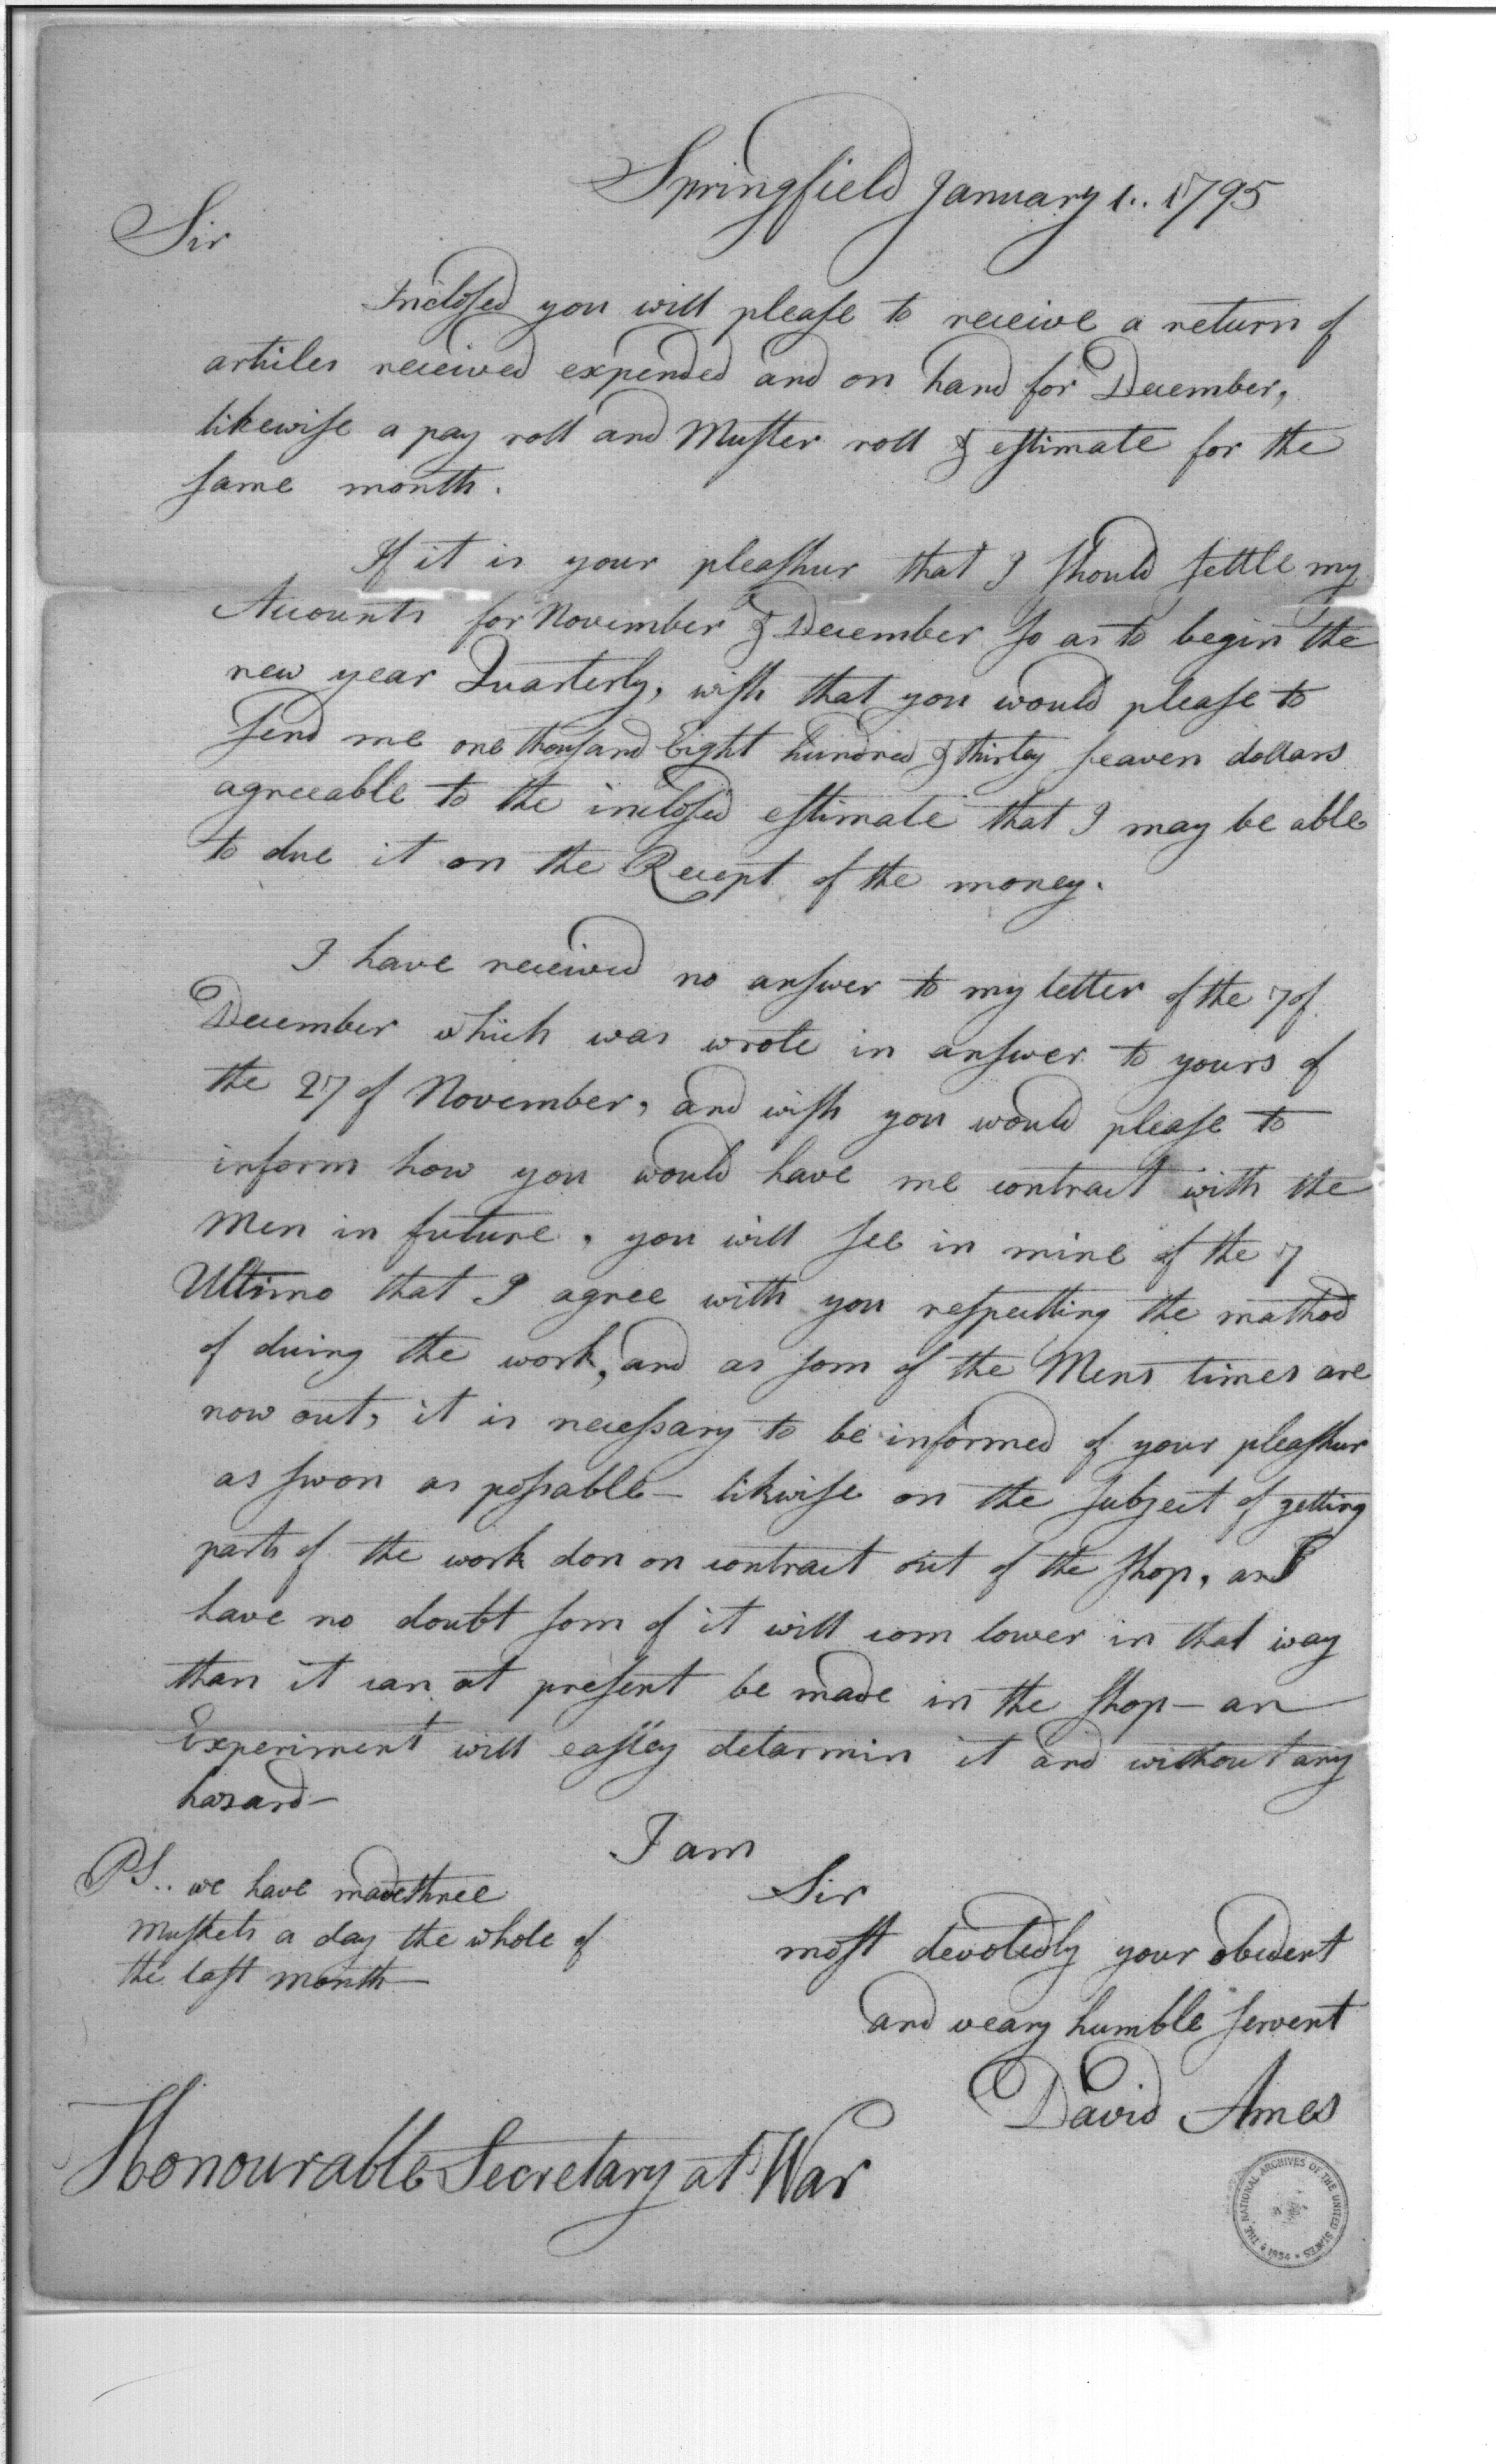 Springfield January 1.. 1795
Sir
Inclosed you will please to receive a return of
articles received expended and on hand for December,
likewise a pay roll and Muster roll & estimate for the
same month.
If it is your pleashur that I should settle my
Accounts for November & December so as to begin the
new year Quarterly, wish that you would please to
send me one thousand Eight hundred & thirtey seaven dollars
agreeable to the inclosed estimate that I may be able
to due it on the Recept of the money.
I have received no answer to my letter of the 7 of
December which was wrote in answer to yours of
the 27 of November, and wish you would please to
inform how you would have me contract with the
Men in future, you will see in mine of the 7
Ultimo that I agree with you respectting the mathod
of duing the work, and as som of the Mens times are
now out, it is necessary to be informed of your pleashur
as swon as possable - likwise on the subject of getting
parts of the work don on contract out of the shop, and
have no doubt som of it will com lower in that way
than it can at present be made in the shop - an
Experiment will easiley detarmin it and without any
hasard -
I am
Sir
most devotedly your obedent
and veary humble servent
David Ames
PS.. we have made three
muskets a day the whole of
the last month -
Honourable Secretary at War
THE NATIONAL ARCHIVES OF THE UNITED STATES
1934